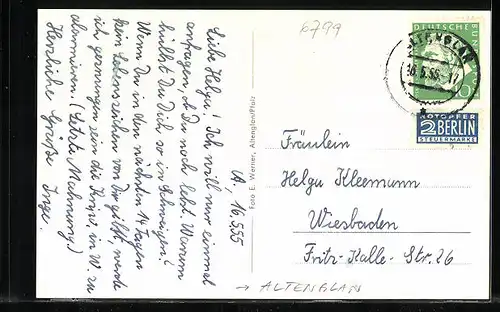 6799
W., 16.5.55
Liebe Helga! Ich will nur einmal
anfragen, ob Du noch lebst. Warum
hüllst Du Dich so in Schweigen?
Wenn Du in den nächsten 14 Tagen
kein Lebenszeichen von Dir gibst, werde
ich gezwungen sein die Kripo in W. zu
alarmieren. (Letzte Mahnung)
Herzliche Grüße Inge.
Foto E. Werner, Altenglan/Pfalz
DEUTSCHE BUN
ALTENGLAN
16.5.55
10
NOTOPFER
2 BERLIN
STEUERMARKE
Fräulein
Helga Kleemann
Wiesbaden
Fritz-Kalle-Str. 26
→ ALTENGLAN